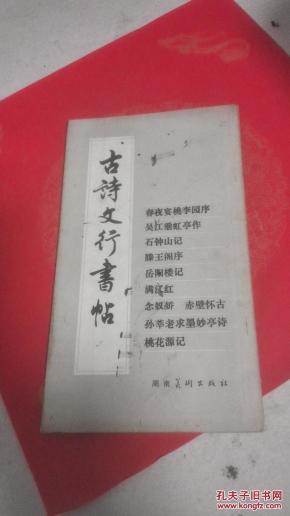 古诗文行書帖
春夜宴桃李园序
吴江垂虹亭作
石钟山记
滕王阁序
岳阳楼记
满江红
念奴娇 赤壁怀古
孙莘老求墨妙亭诗
桃花源记
湖南美術出版社
孔夫子旧书网